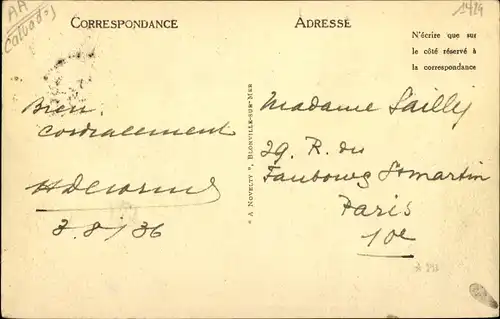 AA
Calvados
1419
CORRESPONDANCE
ADRESSE
N'écrire que sur
le côté réservé à
la correspondance
Bien
cordialement
3.8/36
"A NOVELTY", BLONVILLE-SUR-MER
Madame Sailly
29. R. du
Faubourg St martin
Paris
10e